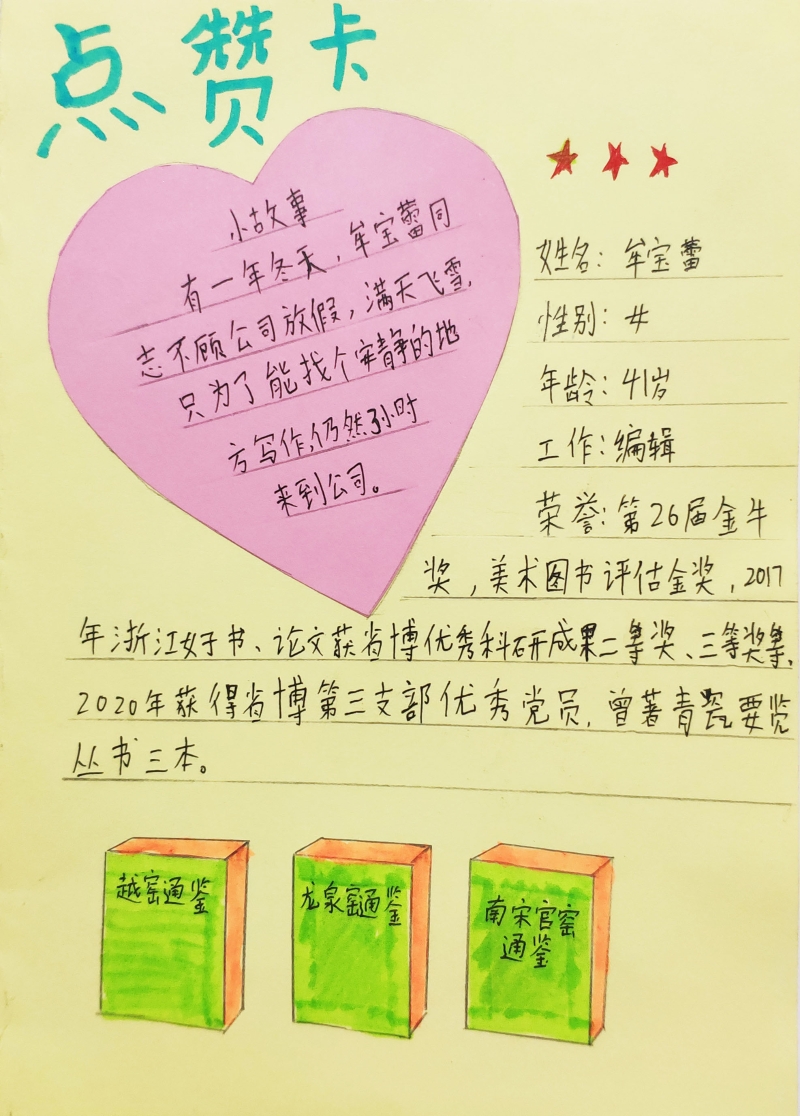 点赞卡
小故事
有一年冬天，牟宝蕾同
志不顾公司放假，满天飞雪，
只为了能找个安静的地
方写作，仍然孙时
来到公司。
姓名：牟宝蕾
性别：女
年龄：41岁
工作：编辑
荣誉：第26届金牛
奖，美术图书评估金奖，2017
年浙江好书、论文获省博优秀科研成果二等奖、三等奖等，
2020年获得省博第三支部优秀党员，曾著青瓷要览
丛书三本。
越窑通鉴
龙泉窑通鉴
南宋官窑
通鉴